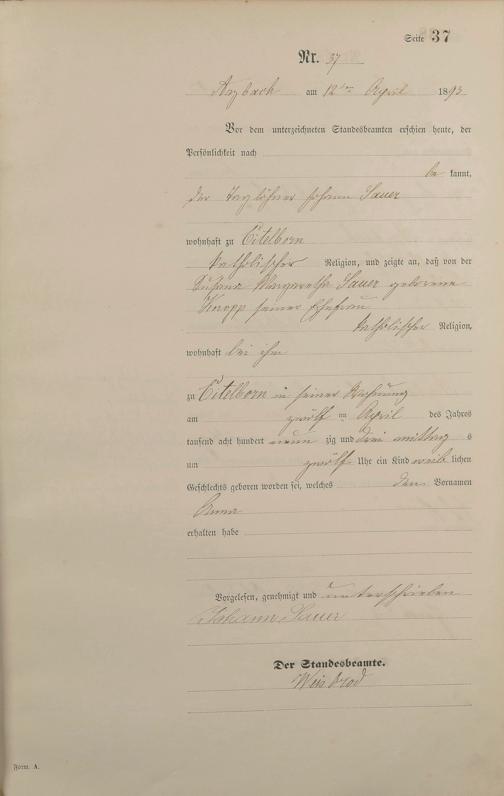 Seite 37
Nr. 37
Arzbach am 12ten April 1893
Vor dem unterzeichneten Standesbeamten erschien heute, der
Persönlichkeit nach
be kannt,
der Taglöhner Johann Sauer
wohnhaft zu Eitelborn
katholischer Religion, und zeigte an, daß von der
Margaretha Sauer geborene
Knopp seiner Ehefrau
katholischer Religion,
wohnhaft bei ihm
zu Eitelborn in seiner Wohnung
am zwölften April des Jahres
tausend acht hundert neun zig und drei mittag s
um zwölf Uhr ein Kind weib lichen
Geschlechts geboren worden sei, welches den Vornamen
Anna
erhalten habe
Vorgelesen, genehmigt und unterschrieben
Johann Sauer
Der Standesbeamte.
Weisbrod
Form. A.